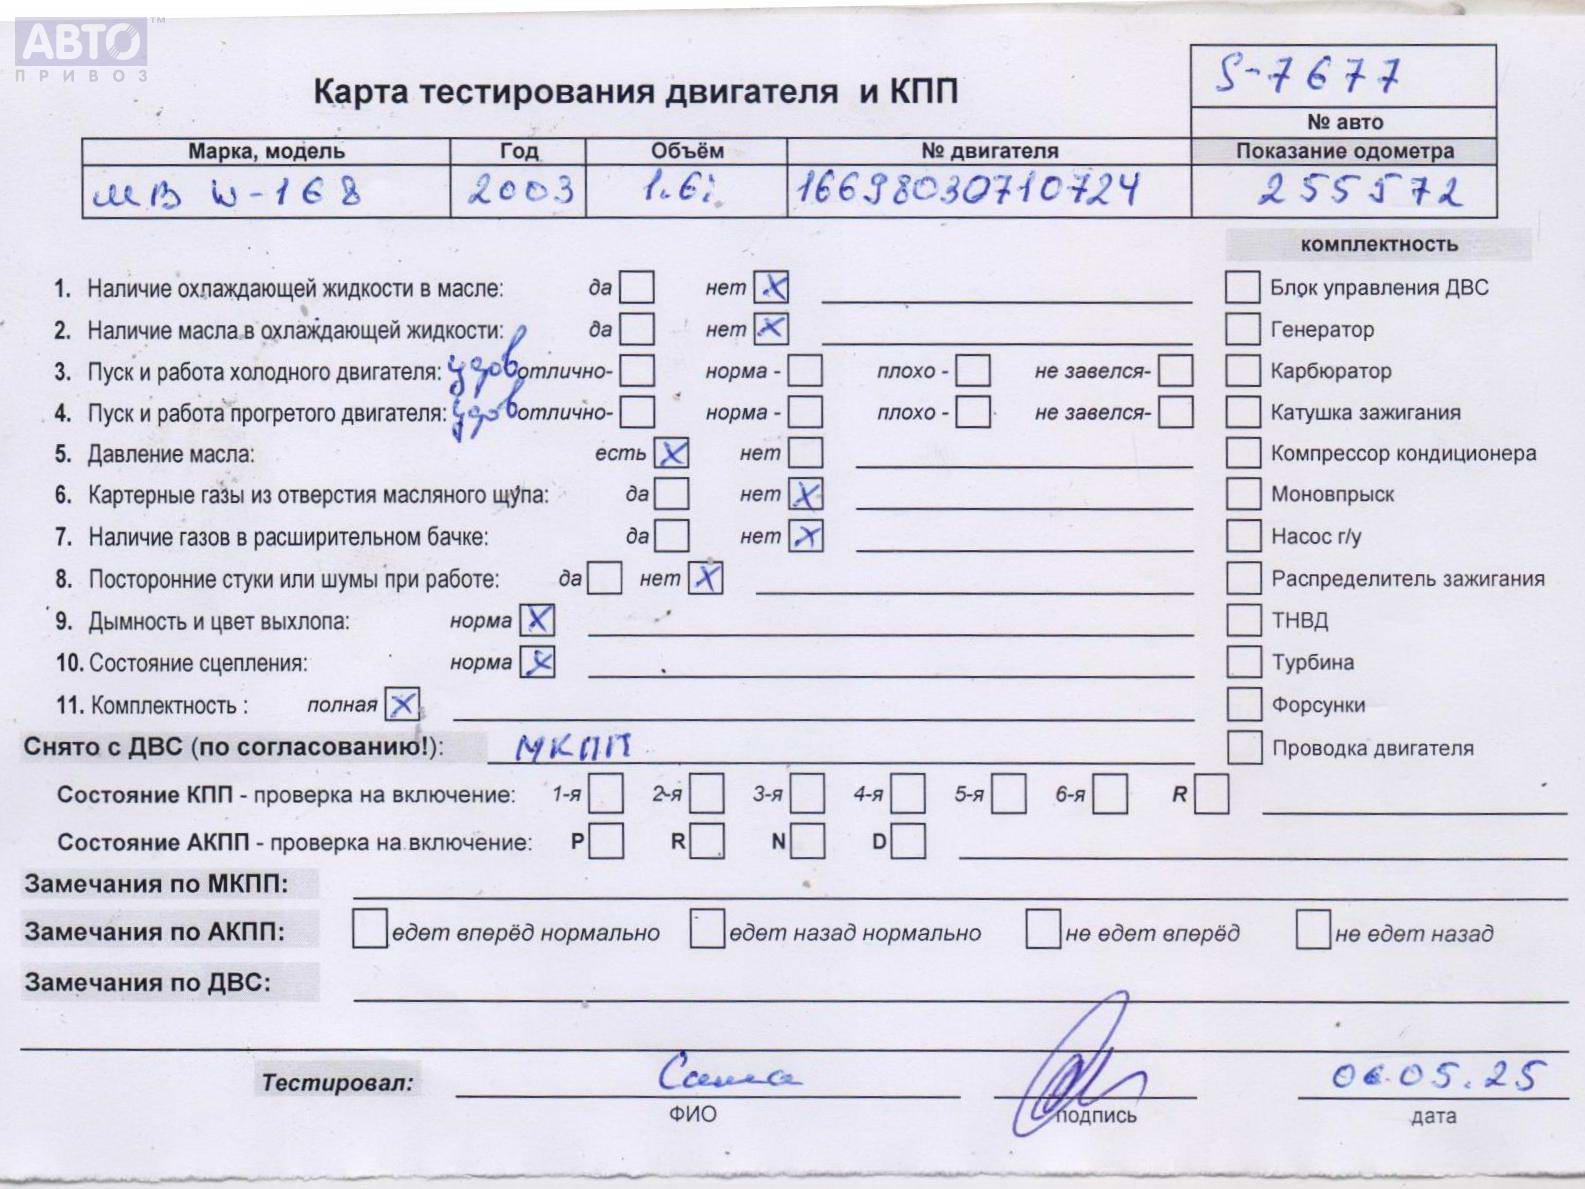 АВТО™
ПРИВОЗ
Карта тестирования двигателя и КПП
S-7677
№ авто
Марка, модель Год Объём № двигателя Показание одометра
МВ W-168 2003 1.6i 16698030710724 255572
комплектность
1. Наличие охлаждающей жидкости в масле: да нет X Блок управления ДВС
2. Наличие масла в охлаждающей жидкости: да нет X Генератор
3. Пуск и работа холодного двигателя: удов отлично- норма - плохо - не завелся- Карбюратор
4. Пуск и работа прогретого двигателя: удов отлично- норма - плохо - не завелся- Катушка зажигания
5. Давление масла: есть X нет Компрессор кондиционера
6. Картерные газы из отверстия масляного щупа: да нет X Моновпрыск
7. Наличие газов в расширительном бачке: да нет X Насос г/у
8. Посторонние стуки или шумы при работе: да нет X Распределитель зажигания
9. Дымность и цвет выхлопа: норма X ТНВД
10. Состояние сцепления: норма X Турбина
11. Комплектность : полная X Форсунки
Снято с ДВС (по согласованию!): МКПП Проводка двигателя
Состояние КПП - проверка на включение: 1-я 2-я 3-я 4-я 5-я 6-я R
Состояние АКПП - проверка на включение: P R N D
Замечания по МКПП:
Замечания по АКПП: едет вперёд нормально едет назад нормально не едет вперёд не едет назад
Замечания по ДВС:
Тестировал: Саша 06.05.25
ФИО подпись дата